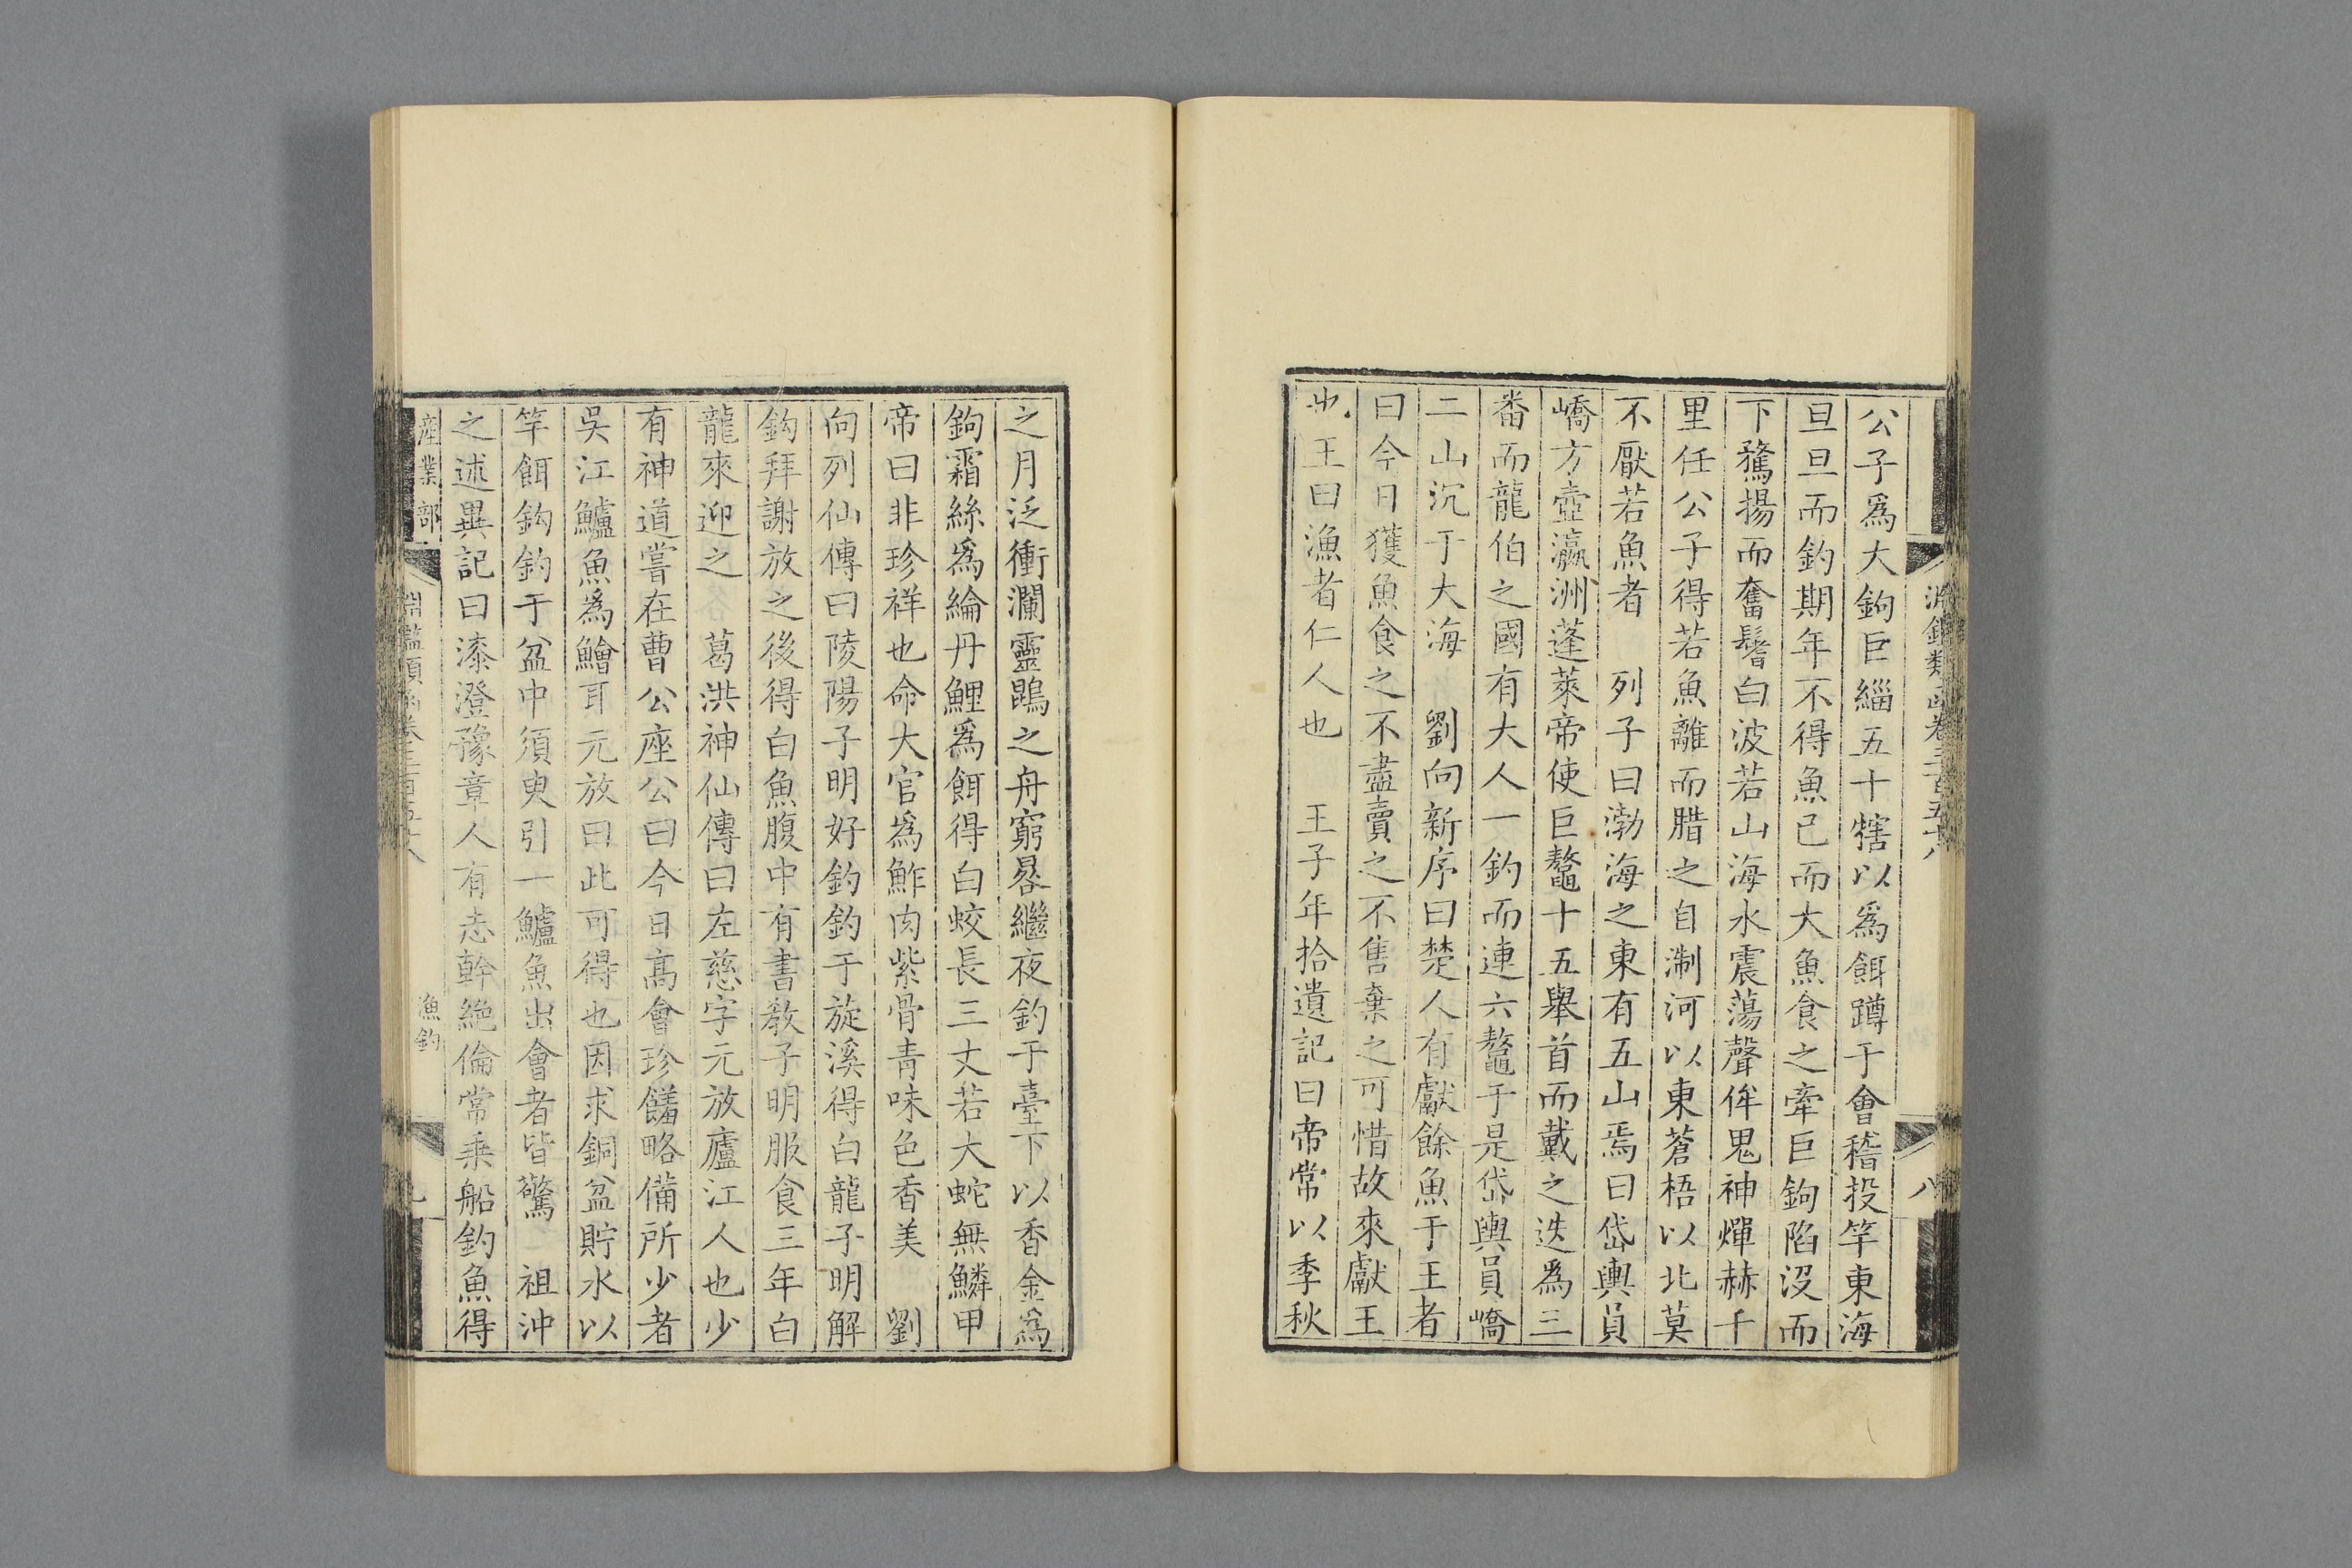 淵鑑類函卷三百五十八
八
公子爲大鉤巨緇五十犗以爲餌蹲于會稽投竿東海
旦旦而釣期年不得魚已而大魚食之牽巨鉤陷没而
下騖揚而奮鬐白波若山海水震蕩聲侔鬼神燀赫千
里任公子得若魚離而腊之自淛河以東蒼梧以北莫
不厭若魚者　列子曰渤海之東有五山焉曰岱輿員
嶠方壺瀛洲蓬萊帝使巨鼇十五舉首而戴之迭爲三
番而龍伯之國有大人一釣而連六鼇于是岱輿員嶠
二山沉于大海　劉向新序曰楚人有獻餘魚于王者
曰今日獲魚食之不盡賣之不售棄之可惜故來獻王
也王曰漁者仁人也　王子年拾遺記曰帝常以季秋
之月泛衝瀾靈鷁之舟窮晷繼夜釣于臺下以香金爲
鉤霜絲爲綸丹鯉爲餌得白蛟長三丈若大蛇無鱗甲
帝曰非珍祥也命大官爲鮓肉紫骨青味色香美　劉
向列仙傳曰陵陽子明好釣釣于旋溪得白龍子明解
鈎拜謝放之後得白魚腹中有書教子明服食三年白
龍來迎之　葛洪神仙傳曰左慈字元放廬江人也少
有神道嘗在曹公座公曰今日高會珍饈略備所少者
吳江鱸魚爲鱠耳元放曰此可得也因求銅盆貯水以
竿餌鈎釣于盆中須臾引一鱸魚出會者皆驚　祖沖
之述異記曰漆澄豫章人有志幹絶倫常乘船釣魚得
產業部
淵鑑類函卷三百五十八
漁釣
九